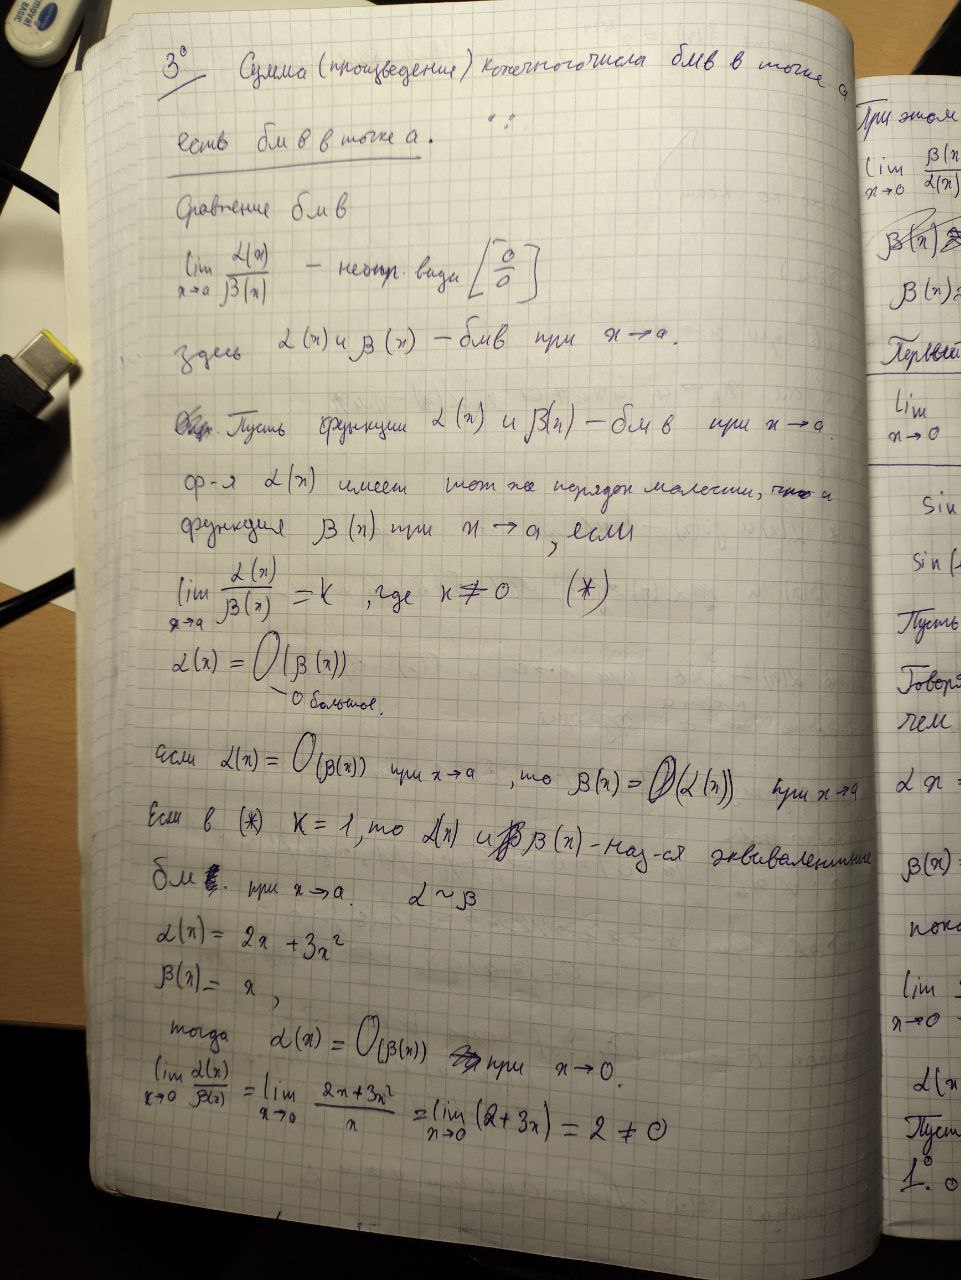 moval
BASIC
3° Сумма (произведение) конечного числа бмв в точке a
есть бмв в точке a.
Сравнение бмв
lim x→a α(x)/β(x) – неопр. вида [0/0]
здесь α(x) и β(x) – бмв при x→a.
Пусть функции α(x) и β(x) – бмв при x→a.
ф-я α(x) имеет тот же порядок малости, что и
функция β(x) при x→a, если
lim x→a α(x)/β(x) = K, где K ≠ 0 (*)
α(x) = O(β(x))
О большое.
если α(x) = O(β(x)) при x→a, то β(x) = O(α(x)) при x→a
Если в (*) K = 1, то α(x) и β(x) – наз-ся эквивалентные
бм. при x→a. α ~ β
α(x) = 2x + 3x²
β(x) = x,
тогда α(x) = O(β(x)) при x→0.
lim x→0 α(x)/β(x) = lim x→0 (2x+3x²)/x = lim x→0 (2+3x) = 2 ≠ 0
При этом
lim x→0 β(x)/α(x)
β(x)
β(x)
Первый
lim x→0
Sin
Sin (
Пусть
Говор
чем
αx =
β(x) =
пока
lim x→0
α(x
Пуст
1°.